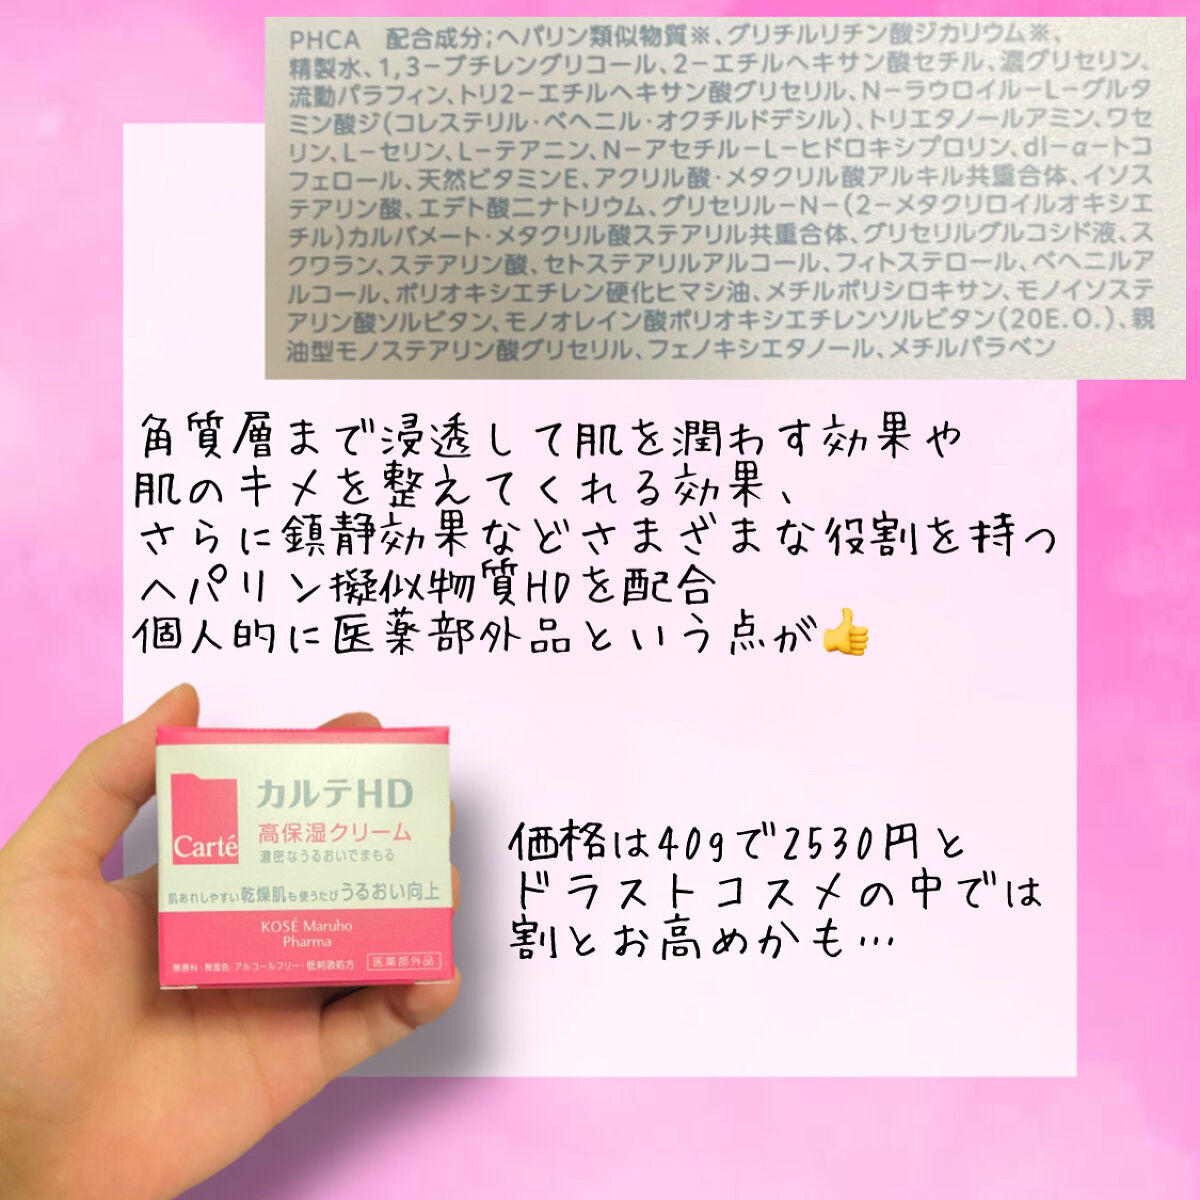 PHCA 配合成分;ヘパリン類似物質※、グリチルリチン酸ジカリウム※、
精製水、1,3−ブチレングリコール、2−エチルヘキサン酸セチル、濃グリセリン、
流動パラフィン、トリ2−エチルヘキサン酸グリセリル、N−ラウロイル−L−グルタ
ミン酸ジ(コレステリル・ベヘニル・オクチルドデシル)、トリエタノールアミン、ワセ
リン、L−セリン、L−テアニン、N−アセチル−L−ヒドロキシプロリン、dl−α−トコ
フェロール、天然ビタミンE、アクリル酸・メタクリル酸アルキル共重合体、イソス
テアリン酸、エデト酸二ナトリウム、グリセリル−N−(2−メタクリロイルオキシエ
チル)カルバメート・メタクリル酸ステアリル共重合体、グリセリルグルコシド液、ス
クワラン、ステアリン酸、セトステアリルアルコール、フィトステロール、ベヘニルア
ルコール、ポリオキシエチレン硬化ヒマシ油、メチルポリシロキサン、モノイソステ
アリン酸ソルビタン、モノオレイン酸ポリオキシエチレンソルビタン(20E.O.)、親
油型モノステアリン酸グリセリル、フェノキシエタノール、メチルパラベン
角質層まで浸透して肌を潤わす効果や
肌のキメを整えてくれる効果、
さらに鎮静効果などさまざまな役割を持つ
ヘパリン擬似物質HDを配合
個人的に医薬部外品という点が👍
Carté
カルテHD
高保湿クリーム
濃密なうるおいでまもる
肌あれしやすい乾燥肌も使うたびうるおい向上
KOSÉ Maruho
Pharma
無香料・無着色・アルコールフリー・低刺激処方
医薬部外品
価格は40gで2530円と
ドラストコスメの中では
割とお高めかも…